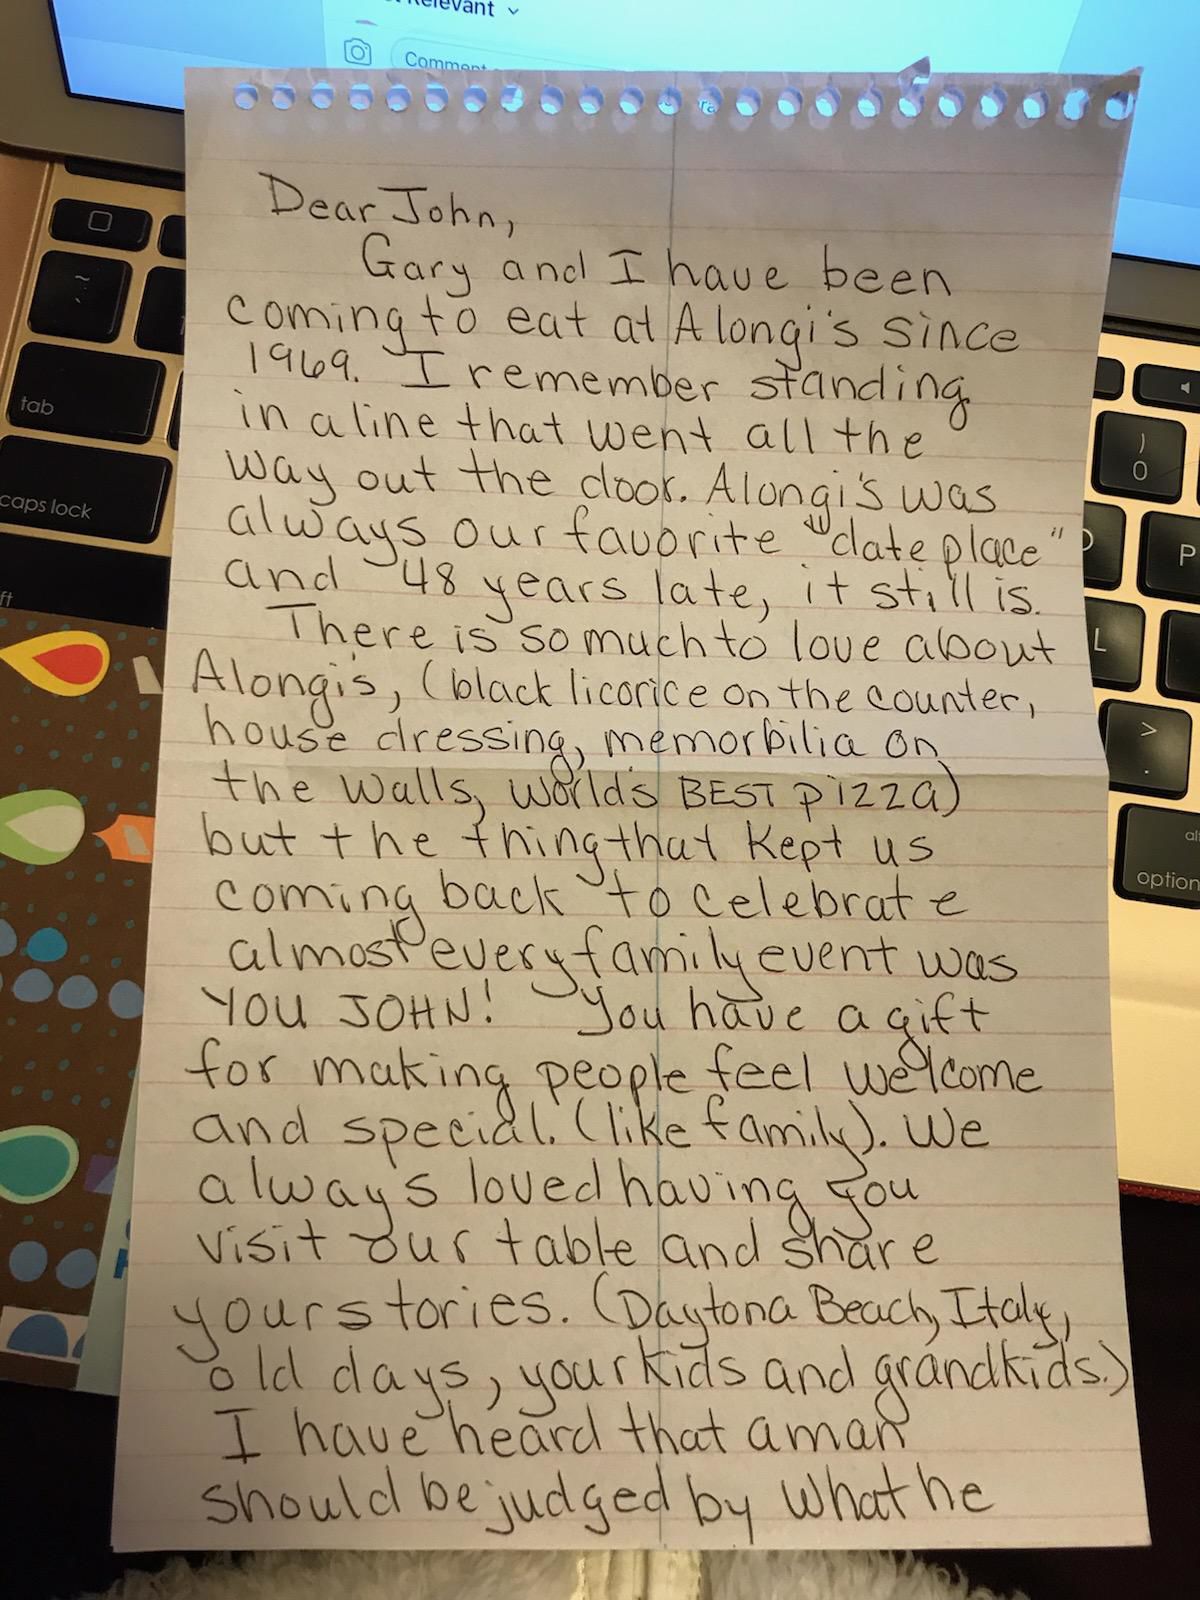 Relevant
Comment
Dear John,
Gary and I have been
coming to eat at Alongi's since
1969. I remember standing
in a line that went all the
way out the door. Alongi's was
always our favorite "date place"
and 48 years late, it still is.
There is so much to love about
Alongi's, (black licorice on the counter,
house dressing, memorbilia on
the walls, world's BEST pizza)
but the thing that kept us
coming back to celebrate
almost every family event was
YOU JOHN! You have a gift
for making people feel welcome
and special. (like family). We
always loved having you
visit our table and share
your stories. (Daytona Beach, Italy,
old days, your kids and grandkids.)
I have heard that a man
should be judged by what he
~
`
tab
caps lock
)
0
P
L
>
.
option